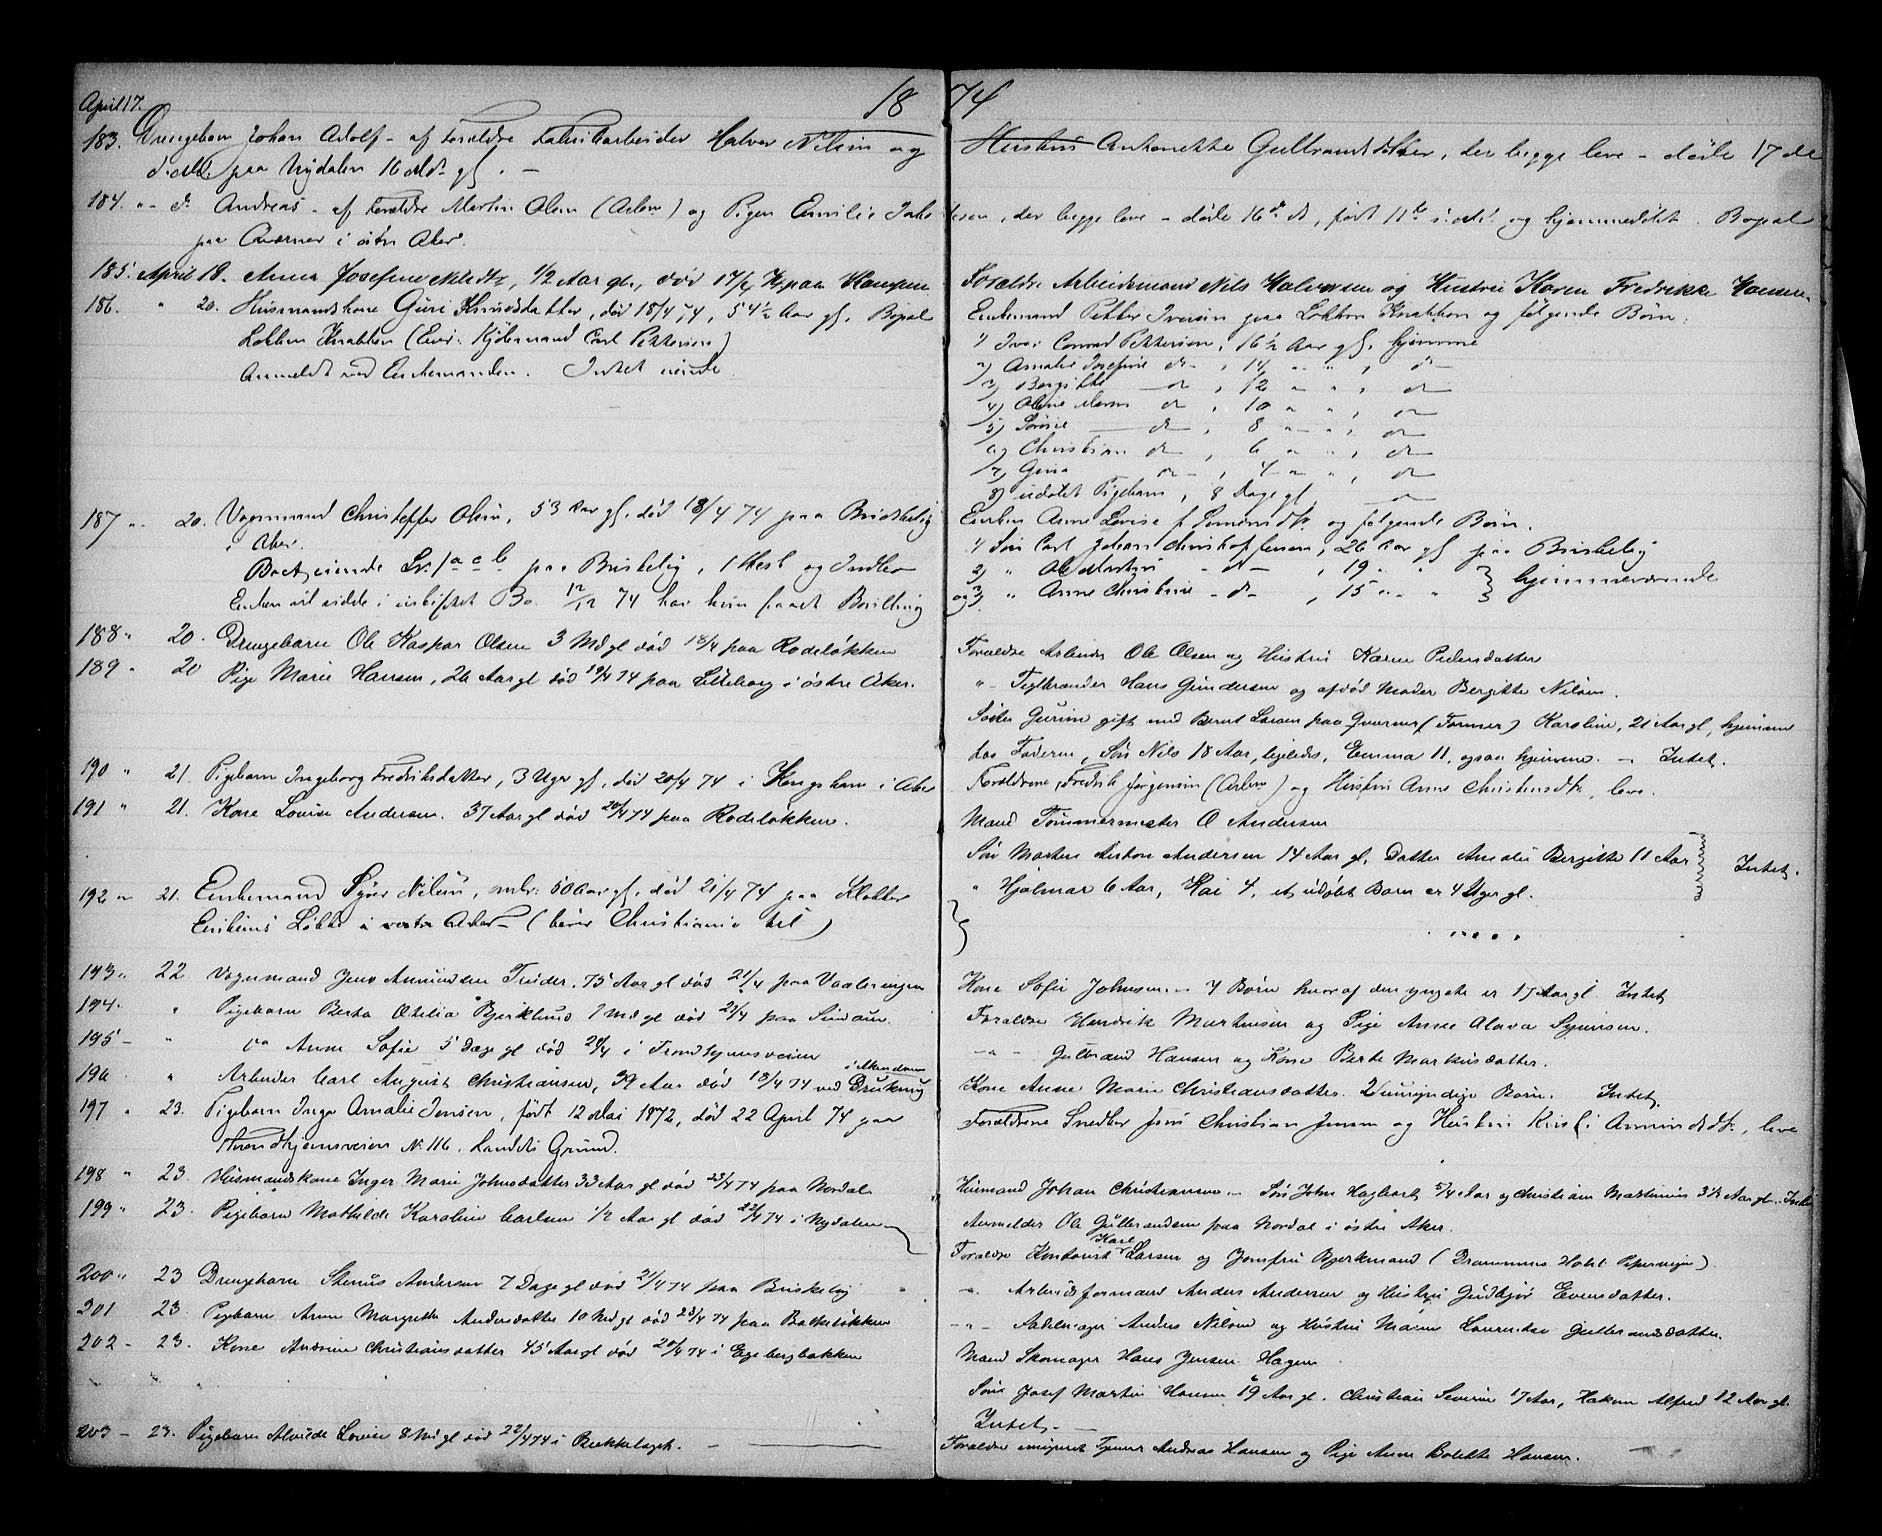 April 17. 1874
183. Drengebarn Johan Adolf - af Foreldre Fabrikarbeider Halvor Nilsen og Hustru Antonette Gulbrandsdatter, der begge leve - døde 17 de
d. Md. paa Nydalen 16 Md. gl. -
184. " - do Andreas - af Foreldre Martin Olsen (Arbm) og Pigen Emilie Jakobsen, der begge leve - døde 16de ds, født 11te s. Md. og hjemmedøbt. Bopæl
paa Qværner i østre Aker.
185. April 18. Anna Josefine Nilsdtr, 1/2 Aar gl., død 17/4 74 paa Kampen Foreldre Arbeidsmand Nils Halvorsen og Hustru Karen Fredrikke Hansen.
186. " 20. Husmandskone Guri Knudsdatter, død 18/4 74, 54 1/2 Aar gl. Bopæl
Løkken Knatten (Eier: Kjøbmand Carl Pettersen)
Anmeldt ved Enkemanden. Intet eiende.
Enkemand Petter Iversen paa Løkken Knatten og følgende Børn:
1) Iver Conrad Pettersen, 16 1/2 Aar gl. hjemme
2) Amalie Josefine do - , 14 " " , do -
3) Bergitte - do , 12 " " , do -
4) Oline Maren do , 10 " " , do
5) Sørine - do - , 8 " " , do
6) Christian do - , 6 " " , do
7) Gina do - , 4 " " , do
8) udøbt Pigebarn, 8 Dage gl. - do
187 " 20. Vognmand Christoffer Olsen, 53 Aar gl. død 18/4 74 paa Briskebÿ
i Aker.
Boet eiende Lr. 1 a c b paa Briskebÿ, 1 Hest og Indbo
Enken vil sidde i uskiftet Bo. 12/12 74 har hun faaet Bevilling
Enken Anne Lovise f. Simensdtr. og følgende Børn.
1) Søn Carl Johan Christoffersen, 26 Aar gl. paa Briskebÿ
2) " Ole Martin - do - , 19 " " } hjemmeværende
og 3) " Anne Christine - do - , 15 " "
188 " 20. Drengebarn Ole Kaspar Olsen 3 Md gl død 18/4 paa Rodeløkken Foreldre Arbeider Ole Olsen og Hustru Karen Pedersdatter
189 " 20 Pige Marie Hansen, 26 Aar gl død 19/4 74 paa Ekeberg i østre Aker. " - Teglbrænder Hans Gundersen og afdød Moder Bergitte Nilsen.
Søster Gurine gift med Bernt Larsen paa Qværner (Former) Karoline, 21 Aar gl, hjemme
hos Faderen, Søn Nils 18 Aar, ligeleds, Emma 11, ogsaa hjemme. - Intet.
190 " 21. Pigebarn Ingeborg Fredriksdatter, 3 Uger gl., død 20/4 74 i Kongshavn i Aker Foreldrene, Fredrik Jørgensen (Arbm) og Hustru Anne Christensdtr, leve.
191 " 21. Kone Lovise Andersen. 37 Aar gl død 20/4 74 paa Rodeløkken. Mand Tømmermester O Andersen
Søn Morten Anton Andersen 14 Aar gl, Datter Amalie Bergitte 11 Aar
" Hjalmar 6 Aar, Kai 4, et udøbt Barn er 4 Uger gl. } Intet.
192 " 21. Enkemand Syver Nilsen, mbr: 50 Aar gl. død 21/4 74 paa Klokker
Eriksens Løkke i vestre Aker - (hører Christiania til) } " " " "
193 " 22 Vognmand Jens Amundsen Tveder, 75 Aar gl død 21/4 paa Vaalerengen Kone Sofie Johnsen - 4 Børn hvoraf den yngste er 17 Aar gl. Intet
194. " Pigebarn Berta Otelia Bjerklund 7 Md gl død 21/4 paa Foreldre Hendrik Martinsen og Pige Anne Simensen.
195 - " do Anne Sofie 5 Dage gl død 20/4 i Trondhjemsveien - " - Gulbrand Hansen og Kone Berte Markusdatter.
196 " Arbeider Carl August Christiansen, 39 Aar død 18/4 74 ved Drukning i Akerselven Kone Anne Marie Christiansdatter. 2 umyndige Børn. Intet.
197 " 23. Pigebarn Inga Amalie Jensen, født 12 Mai 1872, død 22 April 74 paa Foreldrene Snedker Jens Christian Jensen og Hustru Kirsti Amundsdtr., leve
Throndhjemsveien No 116. Landets Grund.
198 " 23. Husmandskone Inger Marie Johnsdatter 33 Aar gl død 23/4 74 paa Nordal Husmand Johan Christiansen - Søn John Hagbart 5/4 Aar og Christian Martinius 3 1/2 Aar gl. Intet
Anmelder Ole Gulbrandsen paa Nordal i østre Aker.
199 " 23. Pigebarn Mathilde Karoline Carlsen 1/2 Aar gl død 22/4 74 i Nydalen Foreldre Kontorist Karl Larsen og Jomfru Bjerkmand (Drammens Hotel Pipervigen)
200 " 23 Drengebarn Stenius Andersen 7 Dage gl død 21/4 74 paa Briskebÿ " Arbeidsformand Anders Andersen og Hustru Gudbjør Evensdatter.
201 23. Pigebarn Anne Margrethe Andersdatter 10 Md gl død 23/4 74 paa Bakkeløkken - " - Anders Nilsen og Hustru Maren Laurentse Gulbrandsdatter.
202 - 23. Kone Andrine Christiansdatter 45 Aar gl død 20/4 74 i Egebergbakken Mand Skomager Hans Jensen Hagen
Søn Josef Martin Hansen 19 Aar gl. Christian Severin 17 Aar, Hakon Alfred 12 Aar gl.
Intet. -
203 - 23. Pigebarn Alvilde Lovise 8 Md gl død 22/4 74 i Bækkelaget. - Foreldre Andreas Hansen og Pige Anne Bolette Hansen.